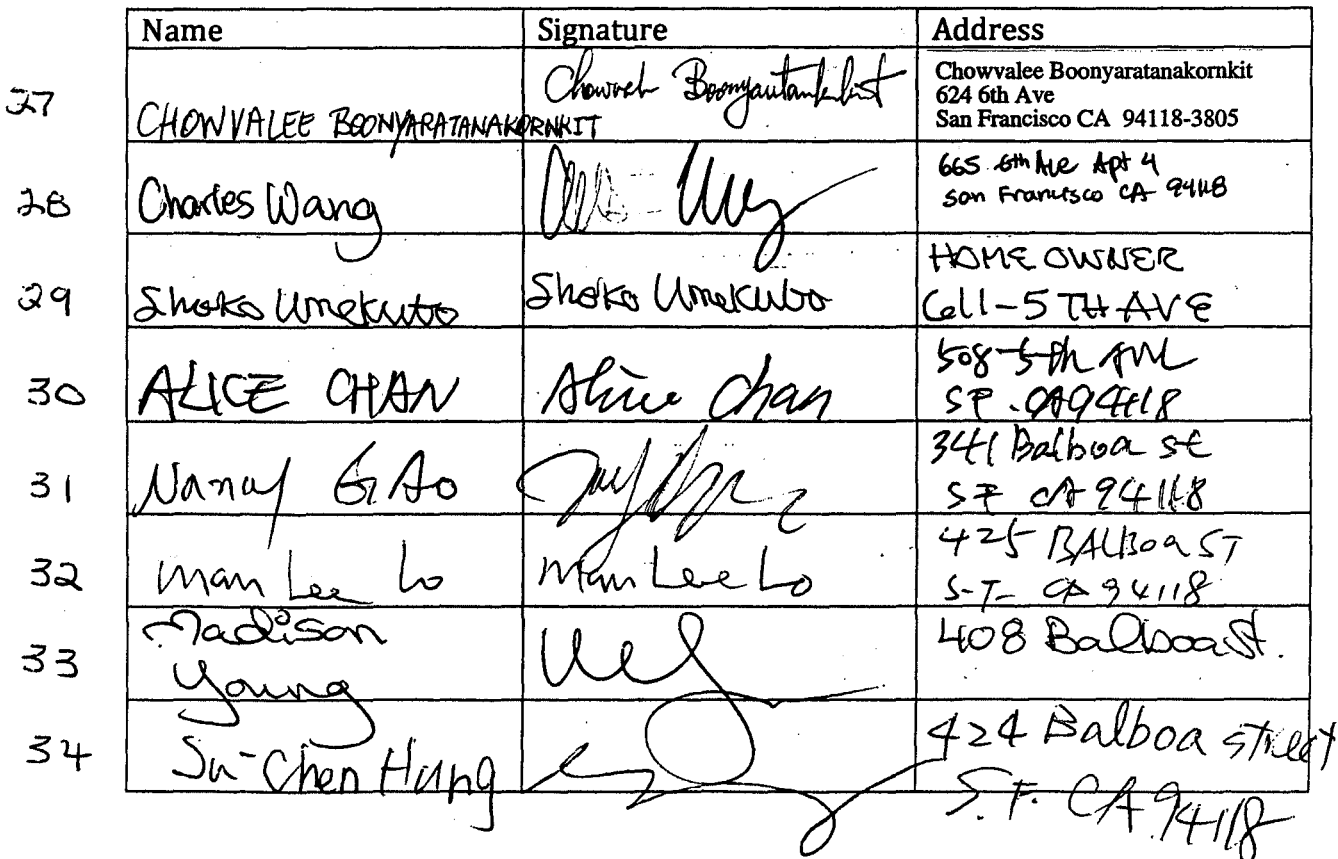 Name Signature Address
27 CHOWVALEE BOONYARATANAKORNKIT
Chowvalee Boonyaratanakornkit
624 6th Ave
San Francisco CA 94118-3805
28 Charles Wang
665 6th Ave Apt 4
San Francisco CA 94118
29 Shoko Umekubo Shoko Umekubo
HOME OWNER
611-5TH AVE
30 ALICE CHAN Alice Chan
508-5th AVE
SF. CA 94118
31 Nancy GAO
341 Balboa st
SF CA 94118
32 Man Lee Lo Man Lee Lo
425 BALBOA ST
S.F. CA 94118
33 Madison
Young
408 Balboa St.
34 Su-Chen Hung
424 Balboa street
S.F. CA 94118